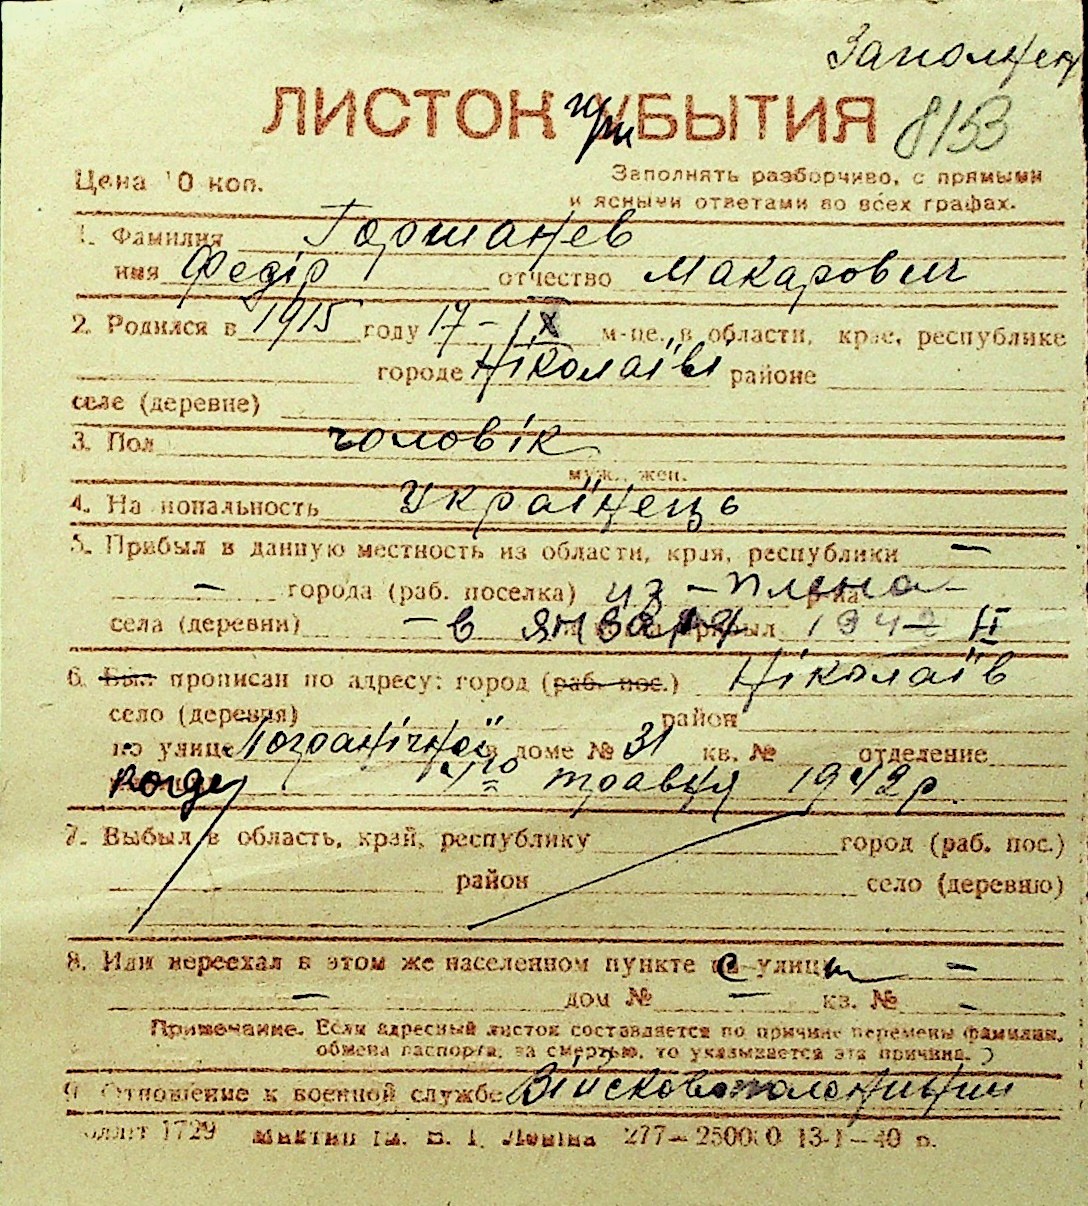 Заполнен
ЛИСТОК при УБЫТИЯ 8153
Цена 10 коп. Заполнять разборчиво, с прямыми
и ясными ответами во всех графах.
1. Фамилия Горшанев
имя Федір отчество Макарович
2. Родился в 1915 году 17 - IX м-це, в области, крае, республике
городе Ніколаїві районе
селе (деревне)
3. Пол чоловік
муж., жен.
4. Национальность Українець
5. Прибыл в данную местность из области, края, республики —
— города (раб. поселка) из - плена - р-на
села (деревни) - в января прибыл 1942 II
6. Был прописан по адресу: город (раб. пос.) Ніколаїв
село (деревня) район
по улице Пограничної в доме № 31 кв. № отделение
когда 1942 р. травня
7. Выбыл в область, край, республику город (раб. пос.)
район село (деревню)
8. Или переехал в этом же населенном пункте с улицы —
— дом № — кв. № —
Примечание. Если адресный листок составляется по причине перемены фамилии,
обмена паспорта, за смертью, то указывается эта причина.
9. Отношение к военной службе Військовополонений
1729 им. В. И. Ленина 277—250000 13-I—40 р.